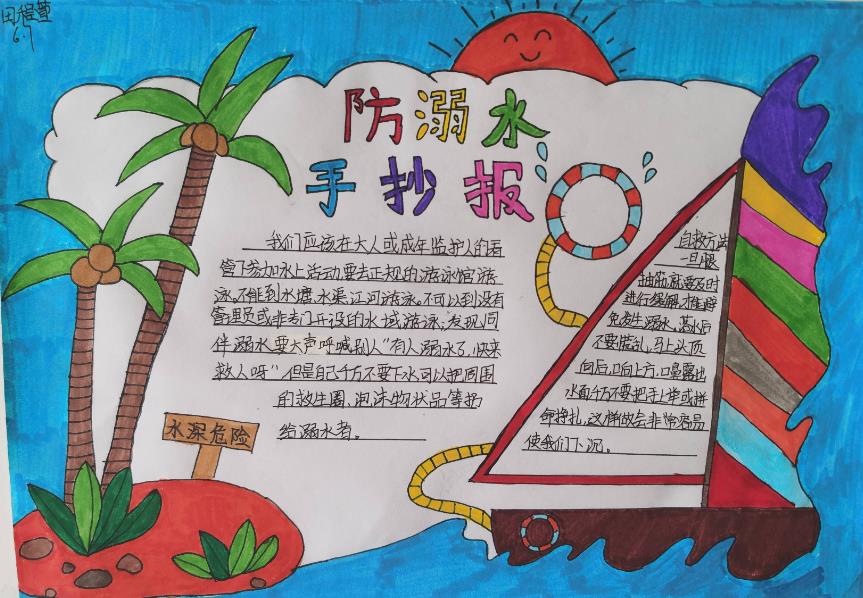 田程萱
6.7
防溺水
手抄报
我们应该在大人或成年监护人的看
管下参加水上活动要去正规的游泳馆游
泳。不能到水塘、水渠、江河游泳。不可以到没有
管理员或非专门开设的水域游泳;发现同
伴溺水要大声呼喊别人"有人溺水了,快来
救人呀"但是自己千万不要下水可以把周围
的救生圈、泡沫物状品等扔
给溺水者。
自救方法
一旦腿
抽筋,就要及时
进行缓解,才能避
免发生溺水,落水后
不要慌乱,马上头顶
向后,口向上方,口鼻露出
水面千万不要把手上举或拼
命挣扎,这样做会非常容易
使我们下沉。
水深危险